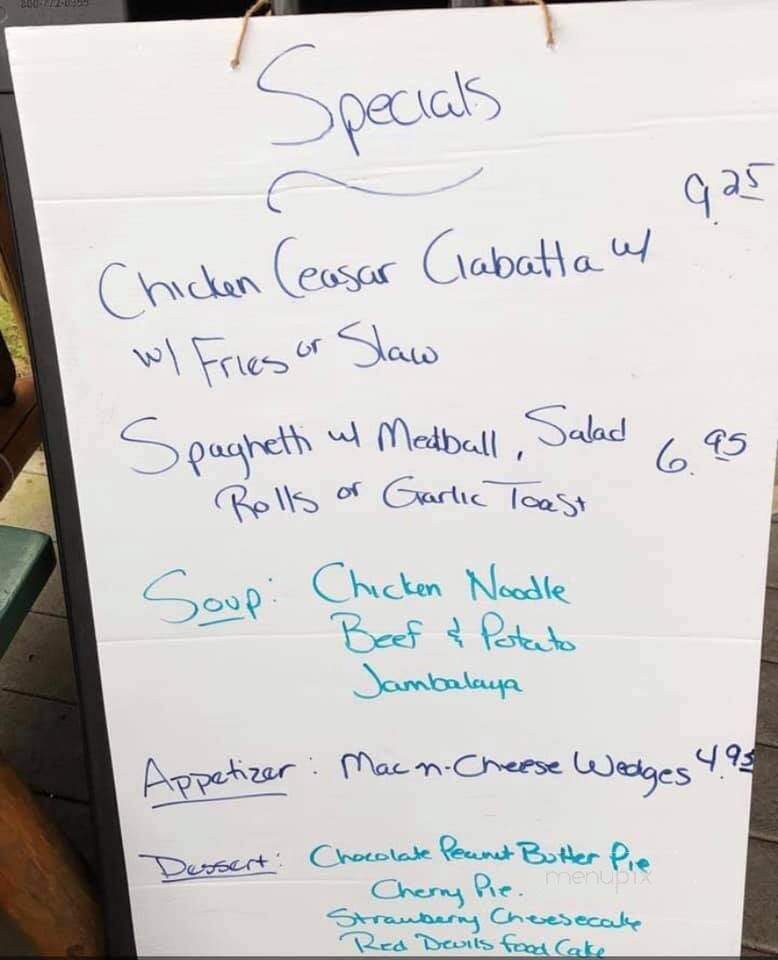 Specials
9.25
Chicken Ceasar Ciabatta w/
w/ Fries or Slaw
Spaghetti w/ Meatball, Salad 6.95
Rolls or Garlic Toast
Soup: Chicken Noodle
Beef & Potato
Jambalaya
Appetizer: Mac-n-Cheese Wedges 4.95
Dessert: Chocolate Peanut Butter Pie
menupix
Cherry Pie.
Strawberry Cheesecake
Red Devils Food Cake